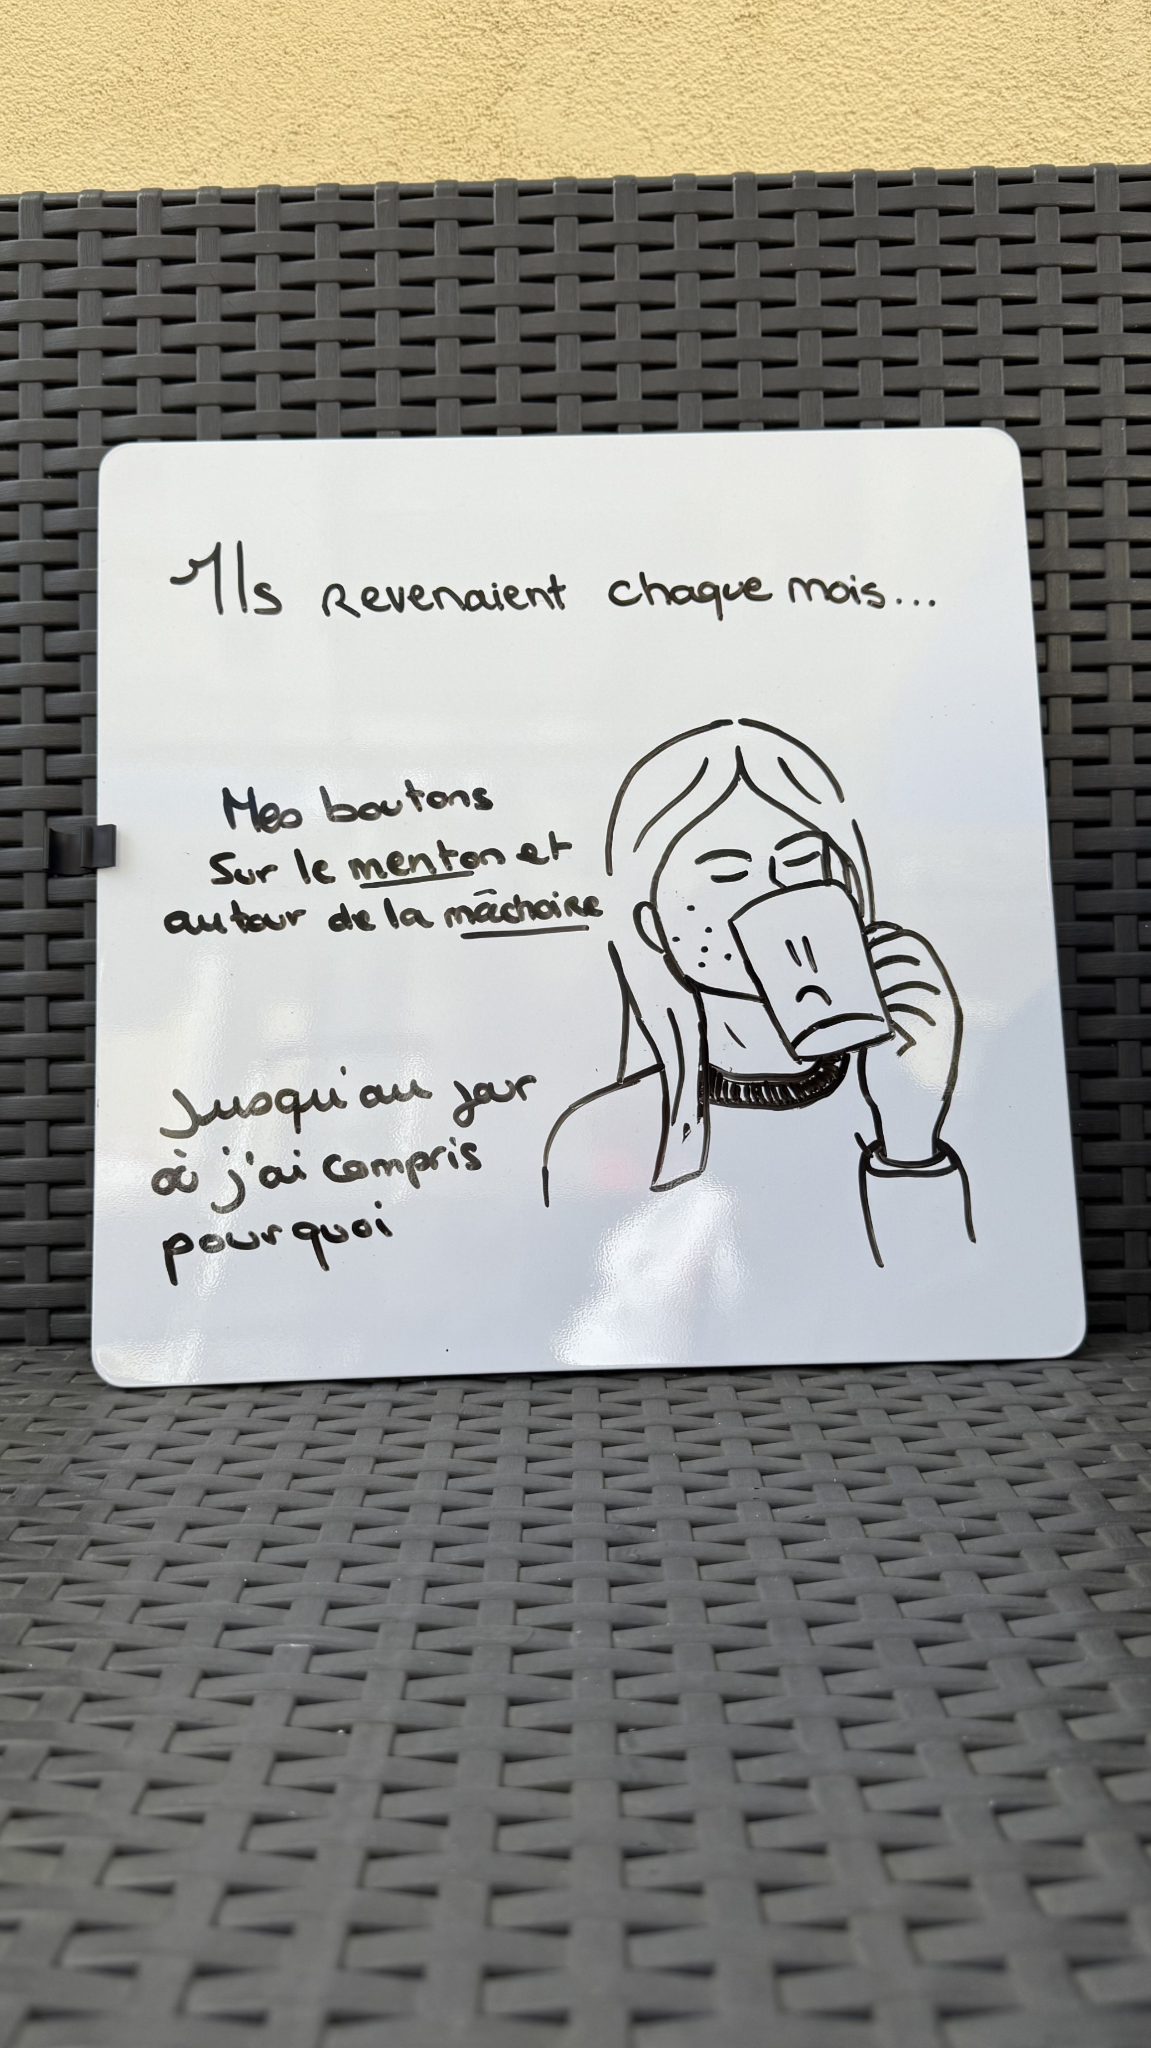 Ils revenaient chaque mois...
Mes boutons
Sur le menton et
autour de la mâchoire
Jusqu'au jour
où j'ai compris
pourquoi